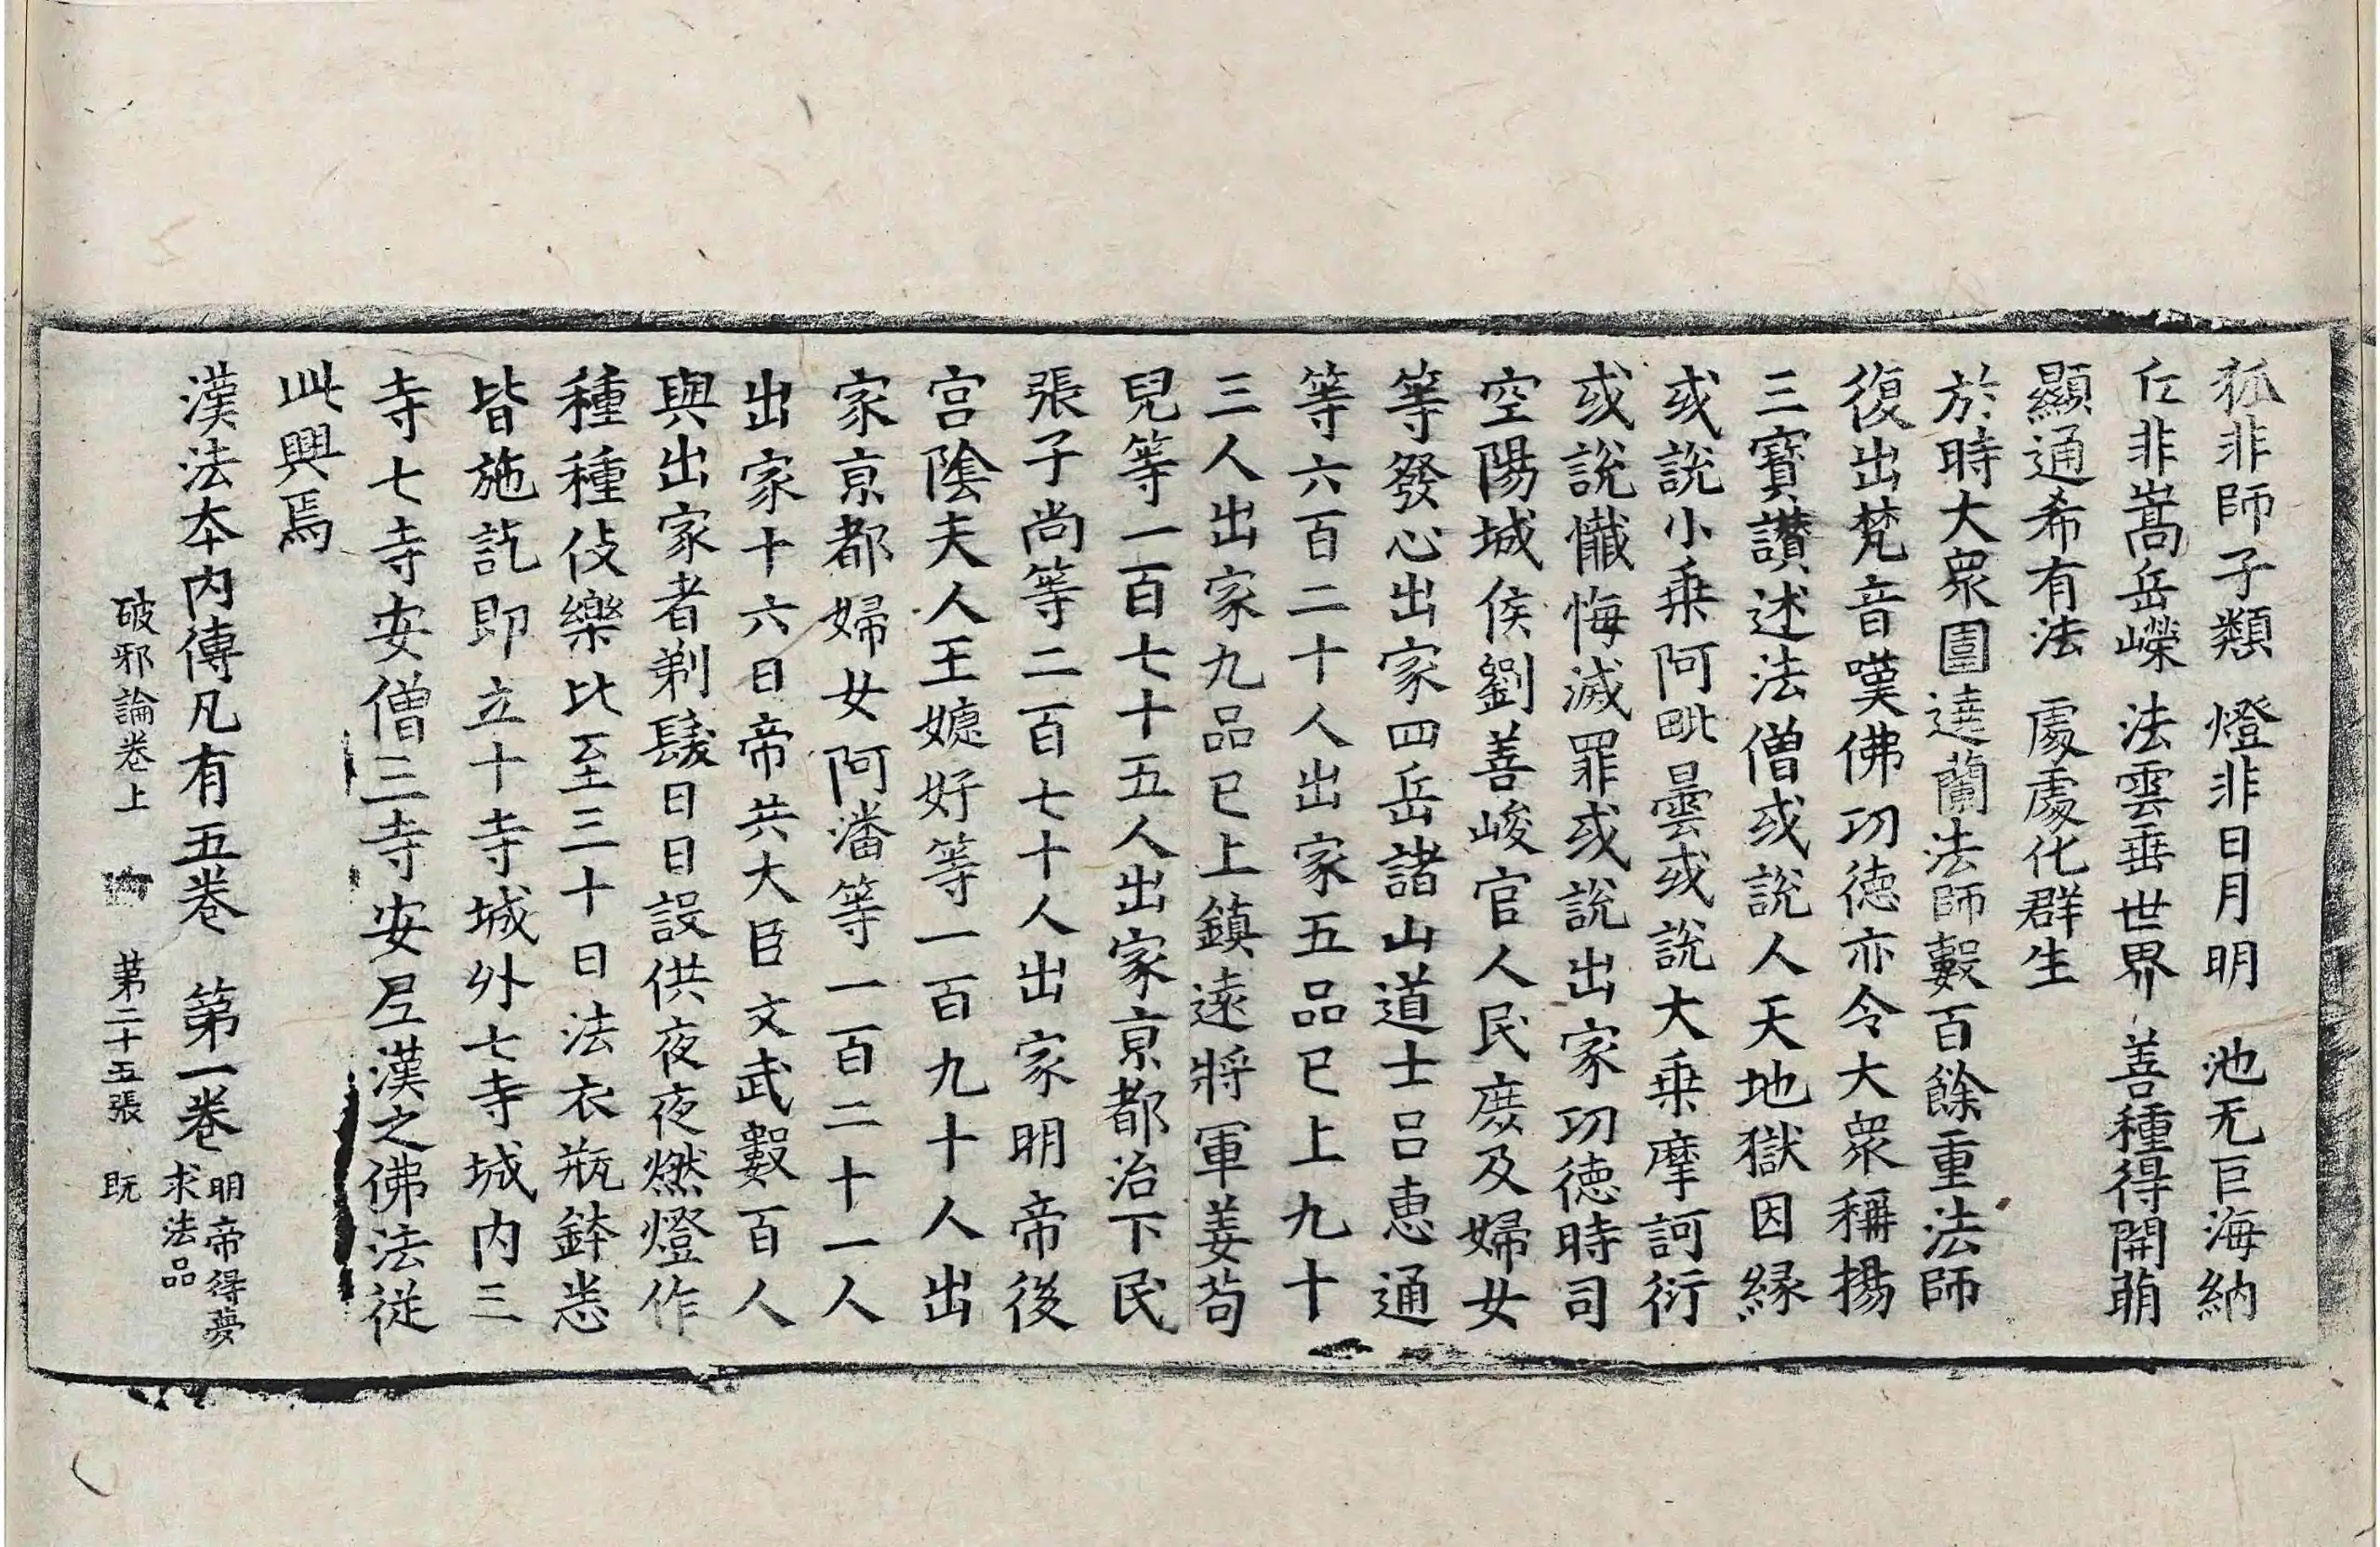 狐非師子類　燈非日月明　池无巨海納
丘非嵩岳嶸　法雲垂世界　善種得開萌
顯通希有法　處處化群生
於時大衆圍遶蘭法師數百餘重法師
復出梵音嘆佛功德亦令大衆稱揚
三寶讃述法僧或說人天地獄因緣
或說小乗阿毗曇或說大乗摩訶衍
或說懺悔滅罪或說出家功德時司
空陽城侯劉善峻官人民庶及婦女
等發心出家四岳諸山道士吕惠通
等六百二十人出家五品已上九十
三人出家九品已上鎮遠將軍姜苟
兒等一百七十五人出家京都治下民
張子尚等二百七十人出家明帝後
宫陰夫人王婕妤等一百九十人出
家京都婦女阿潘等一百二十一人
出家十六日帝共大臣文武數百人
與出家者剃髮日日設供夜夜燃燈作
種種伎樂比至三十日法衣瓶鉢悉
皆施訖即立十寺城外七寺城内三
寺七寺安僧三寺安尼漢之佛法從
此興焉
漢法本内傳凡有五卷　第一卷 明帝得夢
求法品
破邪論卷上　第二十五張　既